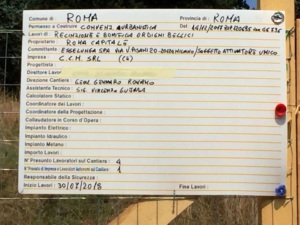 Comune di: ROMA Provincia di: ROMA
Permesso a Costruire CONVENZ. URBANISTICA
Lavori di: RECINZIONE E BONIFICA ORDIGNI BELLICI
Proprietario: ROMA CAPITALE
Committente: ESSELUNGA SPA VIA V. PISANI 20 20124 MILANO / SOGGETTO ATTUATORE UNICO
Impresa: C.C.M. SRL
Progettista:
Direttore Lavori:
Direttore Cantiere: GEOM. GENNARO
Assistente Tecnico: SIG. VINCENZO
Calcolatore Statico:
Coordinatore dei Lavori:
Coordinatore della Progettazione:
Collaudatore in Corso d'Opera:
Impianto Elettrico:
Impianto Idraulico:
Impianto Metano:
Importo Lavori:
N° Presunto Lavoratori sul Cantiere: 4
N° Presunto di Imprese e Lavoratori Autonomi sul Cantiere: 1
Responsabile della Sicurezza:
Inizio Lavori: Fine Lavori: